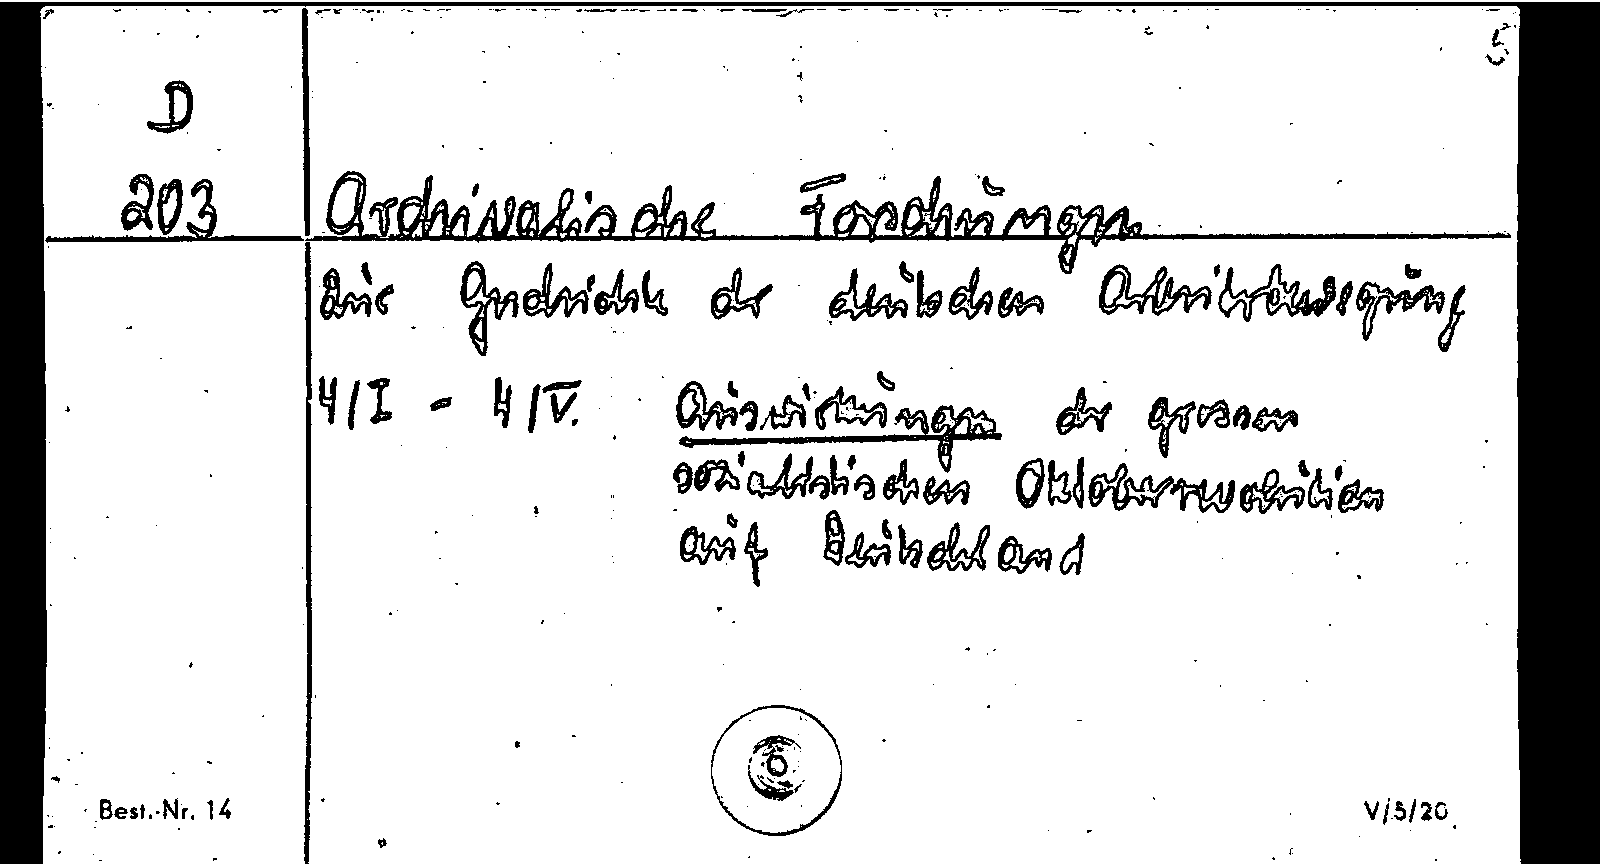 5
D
203 Archivalische Forschungen
zur Geschichte der deutschen Arbeiterbewegung
4/I - 4/IV. Auswirkungen der grossen
sozialistischen Oktoberrevolution
auf Deutschland
Best.-Nr. 14 V/5/20